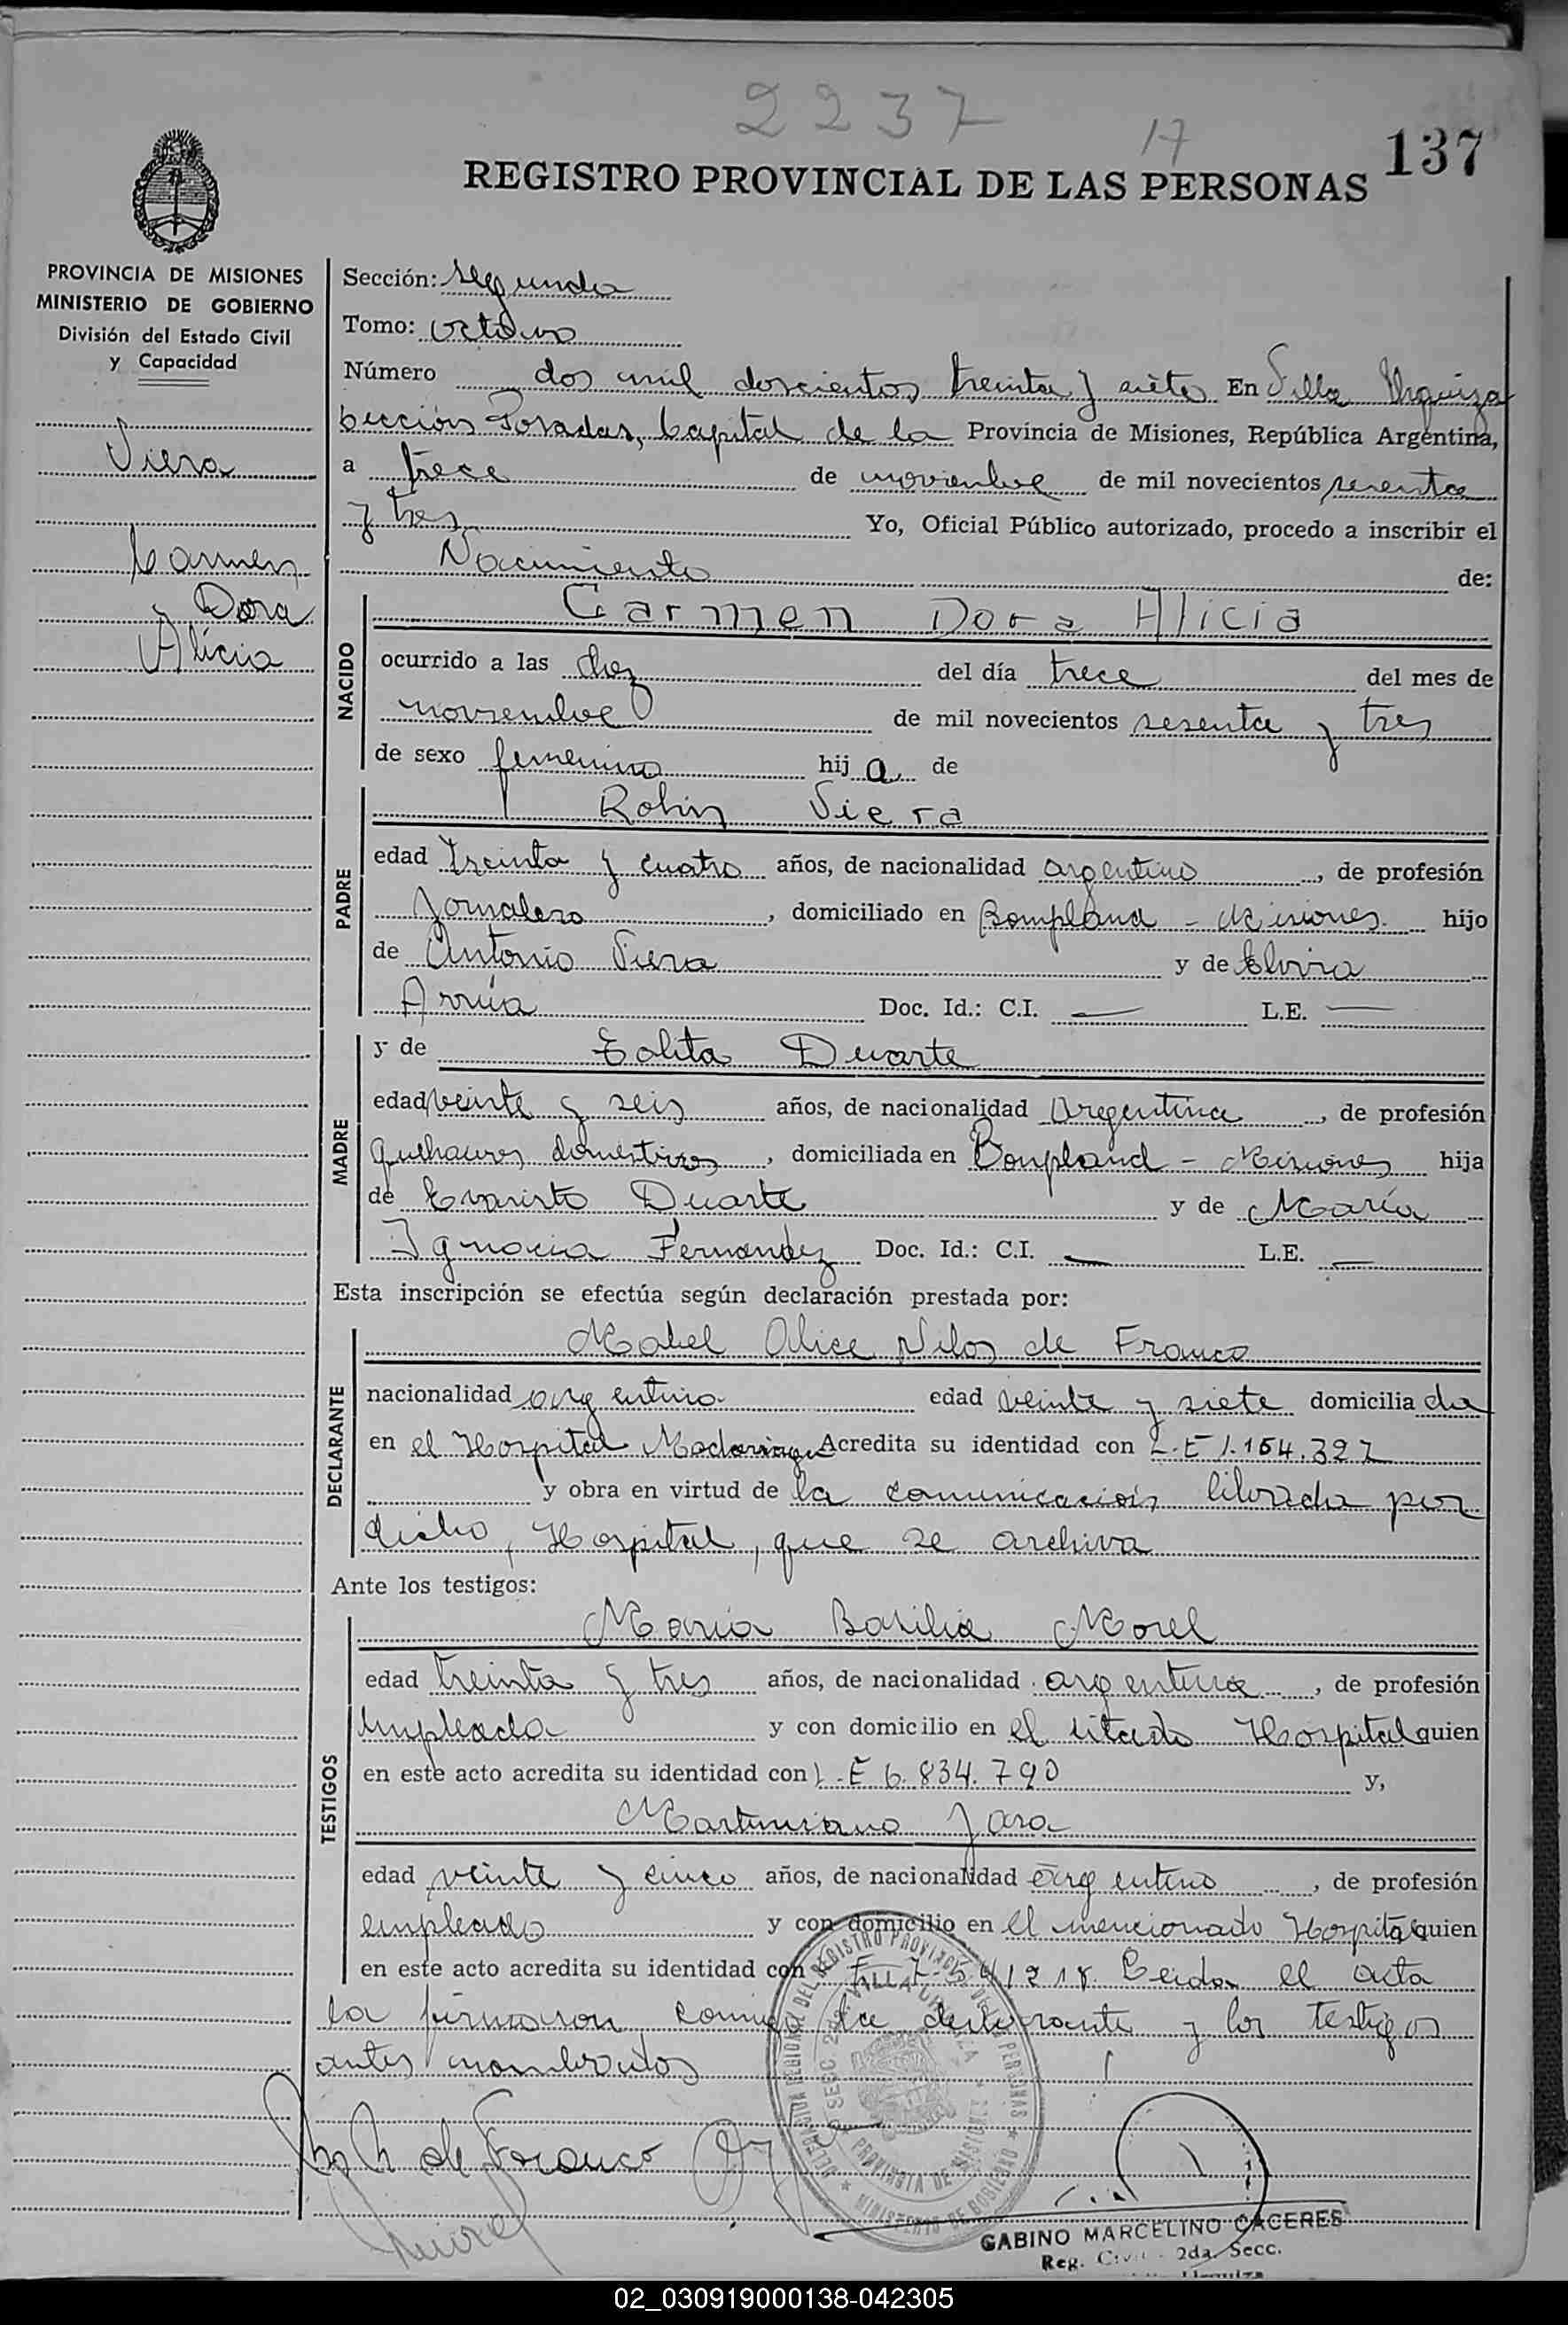 2237
17
137
REGISTRO PROVINCIAL DE LAS PERSONAS
PROVINCIA DE MISIONES
MINISTERIO DE GOBIERNO
División del Estado Civil
y Capacidad
Viera
Carmen
Dora
Alicia
Sección: segunda
Tomo: octavo
Número dos mil doscientos treinta y siete En Villa Urquiza
Sección Posadas, Capital de la Provincia de Misiones, República Argentina,
a trece de noviembre de mil novecientos sesenta
y tres Yo, Oficial Público autorizado, procedo a inscribir el
Nacimiento de:
NACIDO
Carmen Dora Alicia
ocurrido a las diez del día trece del mes de
noviembre de mil novecientos sesenta y tres
de sexo femenino hij a de
PADRE
Robin Viera
edad treinta y cuatro años, de nacionalidad argentino, de profesión
Jornalero, domiciliado en Bompland - Misiones hijo
de Antonio Viera y de Elvira
Arrúa Doc. Id.: C.I. — L.E. —
MADRE
y de Lolita Duarte
edad veinte y seis años, de nacionalidad Argentina, de profesión
quehaceres domésticos, domiciliada en Bonpland - Misiones hija
de Evaristo Duarte y de María
Ignacia Fernandez Doc. Id.: C.I. — L.E. —
Esta inscripción se efectúa según declaración prestada por:
DECLARANTE
Mabel Alice de Franco
nacionalidad argentina edad veinte y siete domicilia da
en el Hospital Madariaga Acredita su identidad con L.E 1.154.327
y obra en virtud de la comunicación librada por
dicho, Hospital, que se archiva
Ante los testigos:
TESTIGOS
María Basilia Morel
edad treinta y tres años, de nacionalidad argentina, de profesión
empleada y con domicilio en el citado Hospital quien
en este acto acredita su identidad con L.E 6.834.790 y,
Martiniano Jara
edad veinte y cinco años, de nacionalidad argentino, de profesión
empleado y con domicilio en el mencionado Hospital quien
en este acto acredita su identidad con Leida el acta
la firmaron conmigo la declarante y los testigos
antes nombrados
de Franco
Morel
DELEGACION REGIONAL DEL REGISTRO PROVINCIAL DE LAS PERSONAS
SECC 2da. VILLA URQUIZA
PROVINCIA DE MISIONES
MINISTERIO DE GOBIERNO
GABINO MARCELINO CACERES
Reg. Civil - 2da. Secc.
Urquiza
02_030919000138-042305